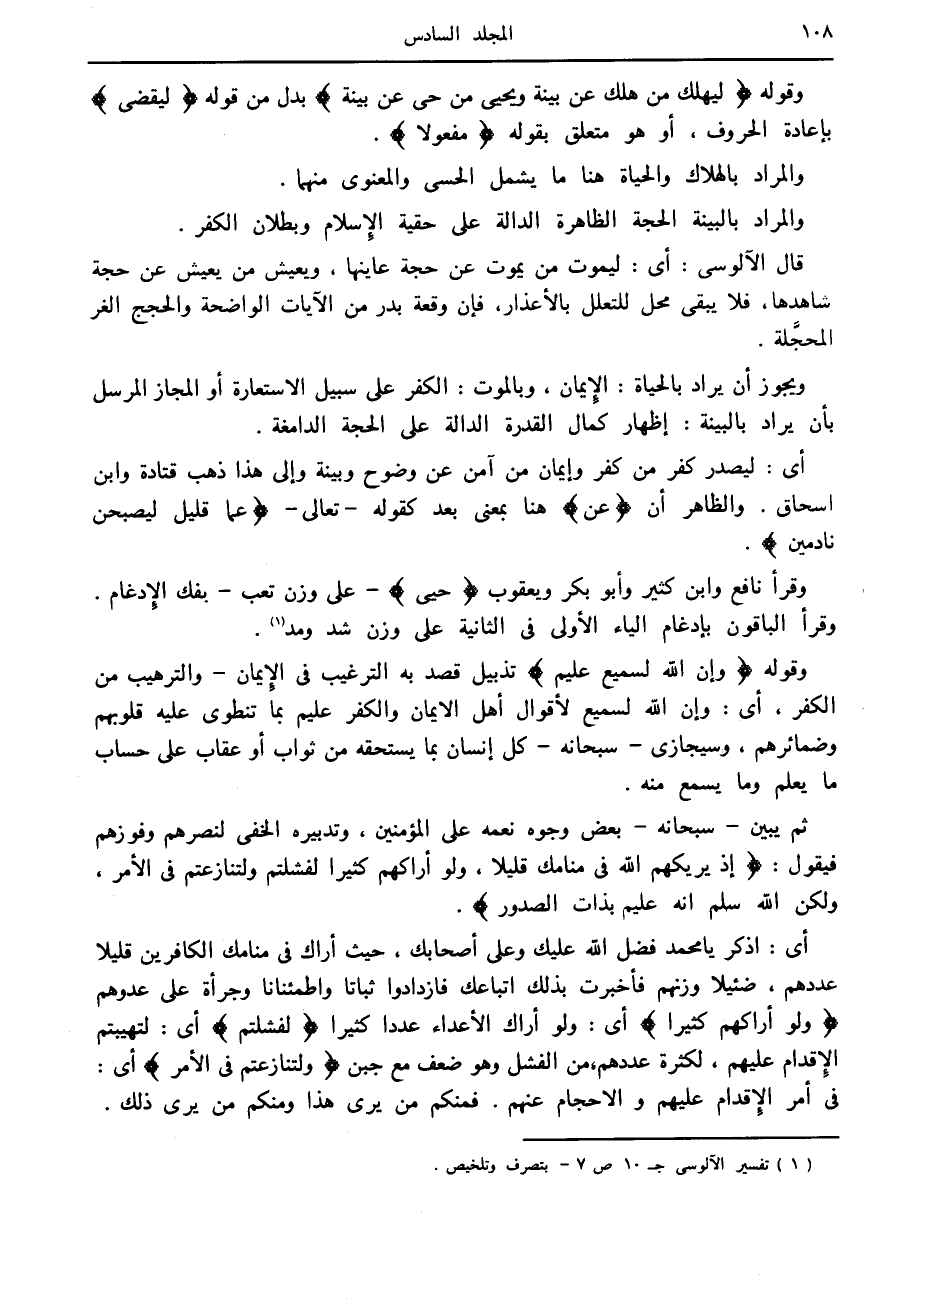 ١٠٨ المجلد السادس
وقوله ﴿ ليهلك من هلك عن بينة ويحيى من حى عن بينة ﴾ بدل من قوله ﴿ ليقضى ﴾
بإعادة الحروف ، أو هو متعلق بقوله ﴿ مفعولا ﴾ .
والمراد بالهلاك والحياة هنا ما يشمل الحسى والمعنوى منهما .
والمراد بالبينة الحجة الظاهرة الدالة على حقية الإسلام وبطلان الكفر .
قال الآلوسى : أى : ليموت من يموت عن حجة عاينها ، ويعيش من يعيش عن حجة
شاهدها، فلا يبقى محل للتعلل بالأعذار، فإن وقعة بدر من الآيات الواضحة والحجج الغر
المحجَّلة .
ويجوز أن يراد بالحياة : الإيمان ، وبالموت : الكفر على سبيل الاستعارة أو المجاز المرسل
بأن يراد بالبينة : إظهار كمال القدرة الدالة على الحجة الدامغة .
أى : ليصدر كفر من كفر وإيمان من آمن عن وضوح وبينة وإلى هذا ذهب قتادة وابن
اسحاق . والظاهر أن ﴿عن﴾ هنا بمعنى بعد كقوله -تعالى- ﴿عما قليل ليصبحن
نادمين ﴾ .
وقرأ نافع وابن كثير وأبو بكر ويعقوب ﴿ حيى ﴾ - على وزن تعب - بفك الإدغام .
وقرأ الباقون بإدغام الياء الأولى فى الثانية على وزن شد ومد(١) .
وقوله ﴿ وإن الله لسميع عليم ﴾ تذييل قصد به الترغيب فى الإيمان - والترهيب من
الكفر ، أى : وإن الله لسميع لأقوال أهل الايمان والكفر عليم بما تنطوى عليه قلوبهم
وضمائرهم ، وسيجازى - سبحانه - كل إنسان بما يستحقه من ثواب أو عقاب على حساب
ما يعلم وما يسمع منه .
ثم يبين - سبحانه - بعض وجوه نعمه على المؤمنين ، وتدبيره الخفى لنصرهم وفوزهم
فيقول : ﴿ إذ يريكهم الله فى منامك قليلا ، ولو أراكهم كثيرا لفشلتم ولتنازعتم فى الأمر ،
ولكن الله سلم انه عليم بذات الصدور ﴾ .
أى : اذكر يامحمد فضل الله عليك وعلى أصحابك ، حيث أراك فى منامك الكافرين قليلا
عددهم ، ضئيلا وزنهم فأخبرت بذلك اتباعك فازدادوا ثباتا واطمئنانا وجرأة على عدوهم
﴿ ولو أراكهم كثيرا ﴾ أى : ولو أراك الأعداء عددا كثيرا ﴿ لفشلتم ﴾ أى : لتهيبتم
الإقدام عليهم ، لكثرة عددهم،من الفشل وهو ضعف مع جبن ﴿ ولتنازعتم فى الأمر ﴾ أى :
فى أمر الإقدام عليهم و الاحجام عنهم . فمنكم من يرى هذا ومنكم من يرى ذلك .
( ١ ) تفسير الآلوسى جـ ١٠ ص ٧ - بتصرف وتلخيص .